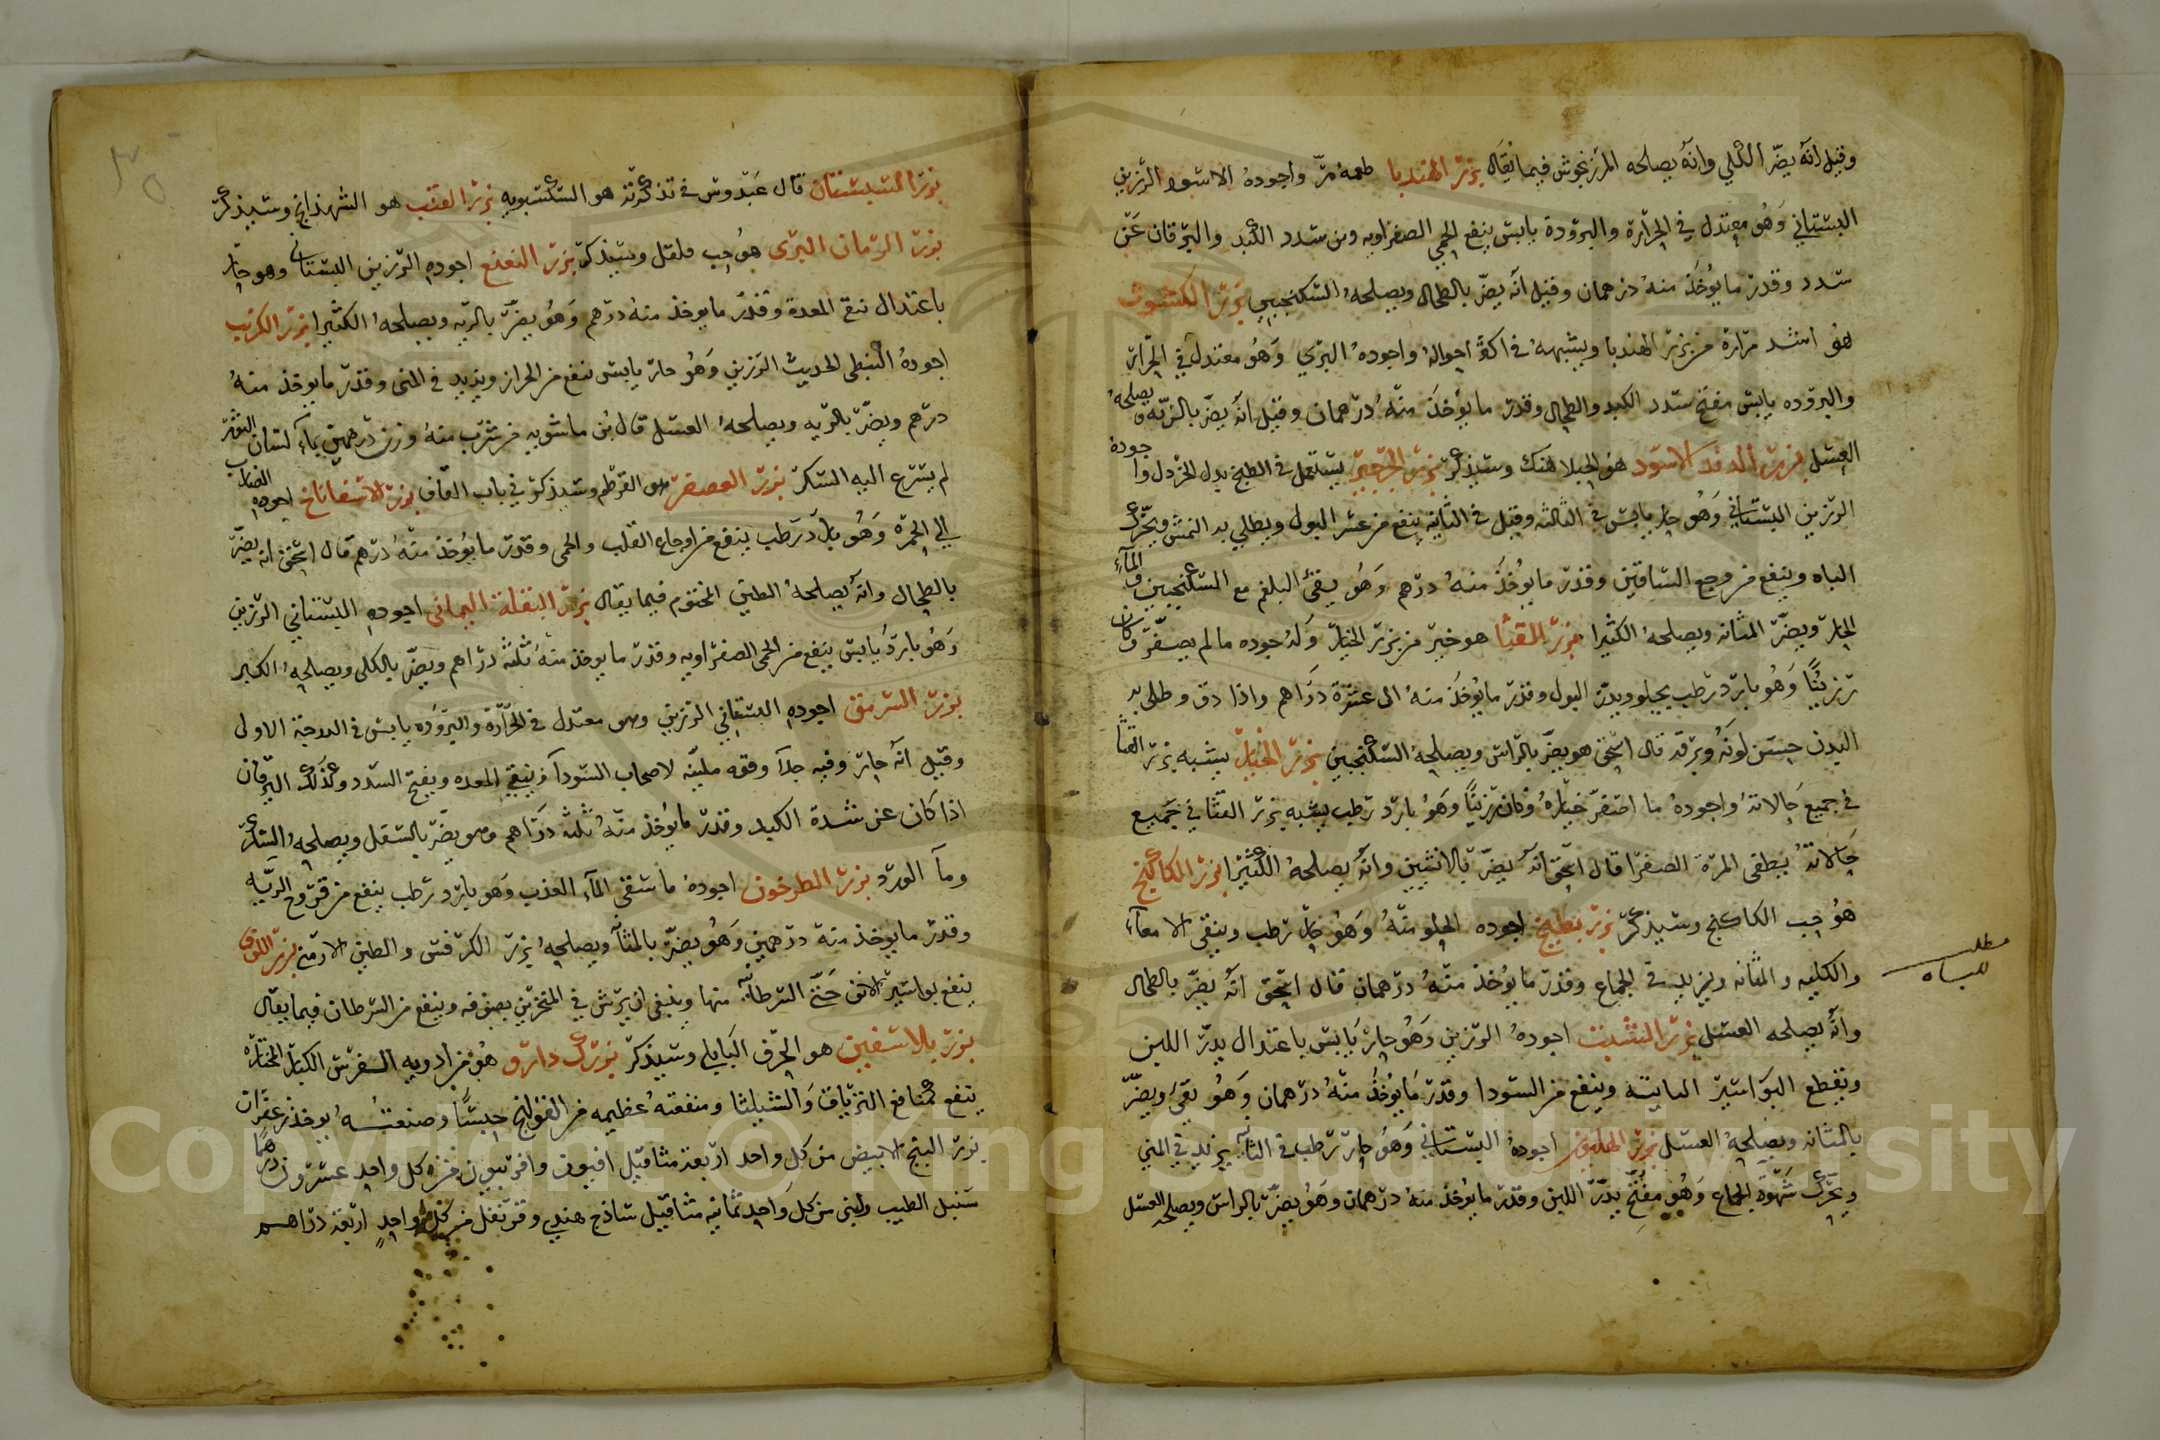 وقيل انه يضر الكلي وانه يصلحه المرزنجوش فيما يقال بزر الهندبا طعمه مر واجوده الاسود الرزين
البستاني وهو معتدل في الحرارة والبرودة يابس ينفع الحمي الصفراويه ومن سدد الكبد واليرقان عن
سدد وقدر ما يؤخذ منه درهمان وقيل انه يضر بالطحال ويصلحه السكنجبين بزر الكشوث
هو اشد مرارة من بزر الهندبا ويشبهه في اكثر احواله واجوده البري وهو معتدل في الحرارة
والبروده يابس مفتح سدد الكبد والطحال وقدر ما يؤخذ منه درهمان وقيل انه يضر بالريه ويصلحه
العسل بزر الاسود هو الحبلاهنك وسيذكر بزر الجرجير يستعمل في الطبخ بدل الخردل واجوده
الرزين البستاني وهو حار يابس في الثالثه وقيل في الثانيه ينفع من عسر البول ويطلي به النمش ويحرك
الباه وينفع من وجع الساقين وقدر ما يؤخذ منه درهم وهو يقئ البلغم مع السكنجبين والماء
الحار ويضر المثانه ويصلحه الكثيرا بزر القثا هو خير من بزر الخيار وله جوده ما لم يصفر وكان
رزينا وهو بارد رطب يجلو ويدر البول وقدر ما يؤخذ منه الى عشرة دراهم واذا دق وطلى به
البدن حسن لونه وبرقه قال اسحق هو يضر بالراس ويصلحه السكنجبين بزر الخيار يشبه بزر القثا
في جميع حالاته واجوده ما اصفر خياره وكان رزينا وهو بارد رطب يشبه بزر القثا في جميع
حالاته يطفى المرة الصفرا قال اسحق انه يضر بالانثيين وانه يصلحه الكثيرا بزر الكاكنج
هو حب الكاكنج وسيذكر بزر بطيخ اجوده الحلو منه وهو حار رطب وينقى الامعاء
والكليه والمثانه ويزيد في الجماع وقدر ما يؤخذ منه درهمان قال اسحق انه يضر بالطحال
وانه يصلحه العسل بزر الشبت اجوده الرزين وهو حار يابس باعتدال يدر اللبن
ويقطع البواسير النابته وينفع من السودا وقدر ما يؤخذ منه درهمان وهو يقئ ويضر
بالمثانه ويصلحه العسل بزر الهليون اجوده البستاني وهو حار رطب في الثانيه يزيد في المني
ويحرك شهوة الجماع وهو مفتح يدر اللبن وقدر ما يؤخذ منه درهمان وهو يضر بالراس ويصلحه العسل
مطلب
للباه
بزر قال عبدوس في تذكرته هو السكسبويه بزر القنب هو الشهذانج وسيذكر
بزر الرمان البرى هو حب فلفل وسيذكر بزر النعنع اجوده الرزين البستاني وهو حار
باعتدال نقع المعدة وقدر ما يؤخذ منه درهم وهو يضر بالريه ويصلحه الكثيرا بزر الكرنب
اجوده النبطي الحديث الرزين وهو حار يابس ينفع من الحراز ويزيد في المنى وقدر ما يؤخذ منه
درهم ويضر بالريه ويصلحه العسل قال بن ماسويه من شرب منه وزن درهمين بماء
لم يسرع اليه السكر بزر العصفر هو القرطم وسيذكر في باب القاف بزر الاسفاناخ اجوده الضارب
الي الحمرة وهو بارد رطب ينفع من اوجاع القلب والحمى وقدر ما يؤخذ منه درهم قال اسحق انه يضر
بالطحال وانه يصلحه الطين المختوم فيما يقال بزر البقلة اليماني اجوده البستاني الرزين
وهو بارد يابس ينفع من الحمى الصفراويه وقدر ما يؤخذ منه ثلثه دراهم ويضر بالكلى ويصلحه
بزر السرمق اجوده البستاني الرزين وهو معتدل في الحرارة والبروده يابس في الدرجة الاولى
وقيل انه حار وفيه جلآ وقوه ملينه لاصحاب السودآ وينقي المعده ويفتح السدد وكذلك اليرقان
اذا كان عن شدة الكبد وقدر ما يؤخذ منه ثلثه دراهم وهو يضر بالسفل ويصلحه السكر
ومآ الورد بزر الطرخون اجوده ما سقى المآء العذب وهو بارد رطب ينفع من قروح الريه
وقدر ما يؤخذ منه درهمين وهو يضر بالمثانه ويصلحه بزر الكرفس والطين الارمني بزر اللوف
ينفع بواسير الانف حتى السرطانيه منها وينبغي ان يرش في المنخرين بصوفه وينفع من السرطان فيما يقال
بزر هو الحرف البابلي وسيذكر بزرك دارو هو من ادويه الفرس الكبار المختاره
ينفع كمنافع الترياق والشليثا ومنفعته عظيمه من القولنج حبسا وصنعته يؤخذ زعفران
بزر البنج الابيض من كل واحد اربعة مثاقيل افيون وافربيون من كل واحد عشرون درهما
سنبل الطيب ولبنى من كل واحد ثمانيه مثاقيل ساذج هندي وقرنفل من كل واحد اربعة دراهم
Copyright © King Saud University